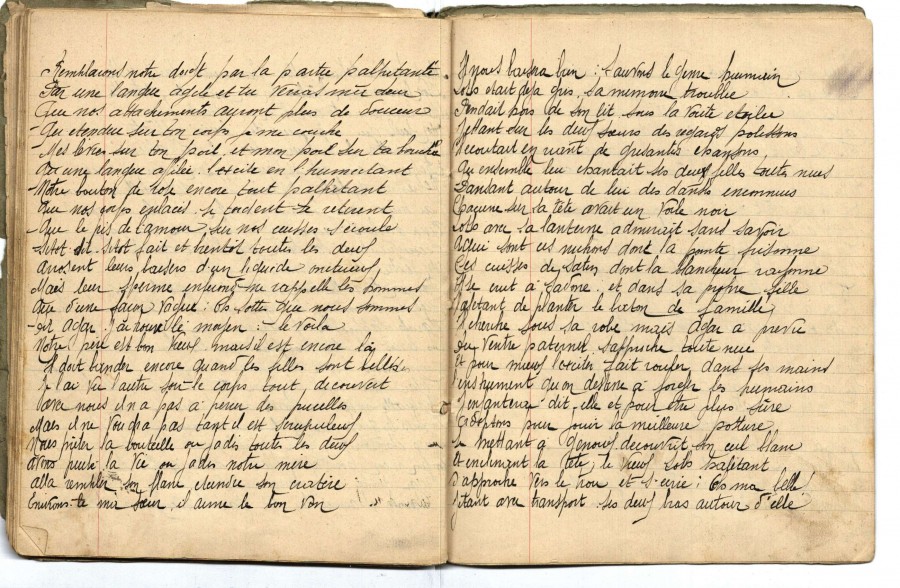 Remplaçons notre doigt par la partie palpitante
Par une langue agile et tu verras mœur
Que nos attachements auront plus de douceur
Qu'étendue sur ton corps je me couche
Mes lèvres sur ton poil et mon poil sur ta bouche
Que une langue agilee l'excite en l'humectant
Notre bouton de rose encore tout palpitant
Que nos corps enlaces se tordent se retirent
Que le jus de l'amour sur nos cuisses s'écoule
Sitot dit sitot fait et bientôt toutes les deux
arrosent leurs baisers d'un liquide onctueux
Mais leur sperme me rappelle les hommes
d'une façon vague : Oh sotte que nous sommes
dit agar j'ai trouvé le moyen : le voila
Notre père est bon vieux mais il est encore là
Il doit bander encore quand les filles sont belles
Je l'ai vu l'autre soir le corps tout découvert
nous il n'a pas à percer des pucelles
Mais il ne voudra pas tant il est scrupuleux
la bouteille ou jadis toutes les deux
la vie ou jadis notre mère
alla remplir son flanc étendre son cratère
Enivrons-le ma sœur il aime le bon vin
Il nous baisera bien : sauvons le genre humain
Loth était déjà gris sa mémoire troublée
Pendait hors de son lit sous la voute etoilée
Jettant sur les deux sœurs des regards polissons
Il écoutait en riant de grisantes chansons
Qu'ensemble leu chantait ses deux filles toutes nues
Dansant autour de lui des danses inconnues
Chacune sur sa tête avait un voile noir
Loth avec sa lanterne admirait sans savoir
A qui sont ces nichons dont la pointe frissonne
Ces cuisses de satin dont la blancheur rayonne
Il se croit à et dans sa propre fille
de planter le baton de famille
Il cherche sous sa robe mais agar a
du ventre paternel s'approche toute nue
Et pour mieux l'exciter fait rouler dans ses mains
l'instrument qu'on destine à forger les humains
J'enfanterai dit-elle et pour être plus sûre
adoptons pour jouir la meilleure posture
Se mettant à genoux découvrit son cul blanc
Et inclinant la tête, le vieux Loth haletant
S'approche vers le trou et s'ecrie : Oh ma belle
jetant avec transport ses deux bras autour d'elle